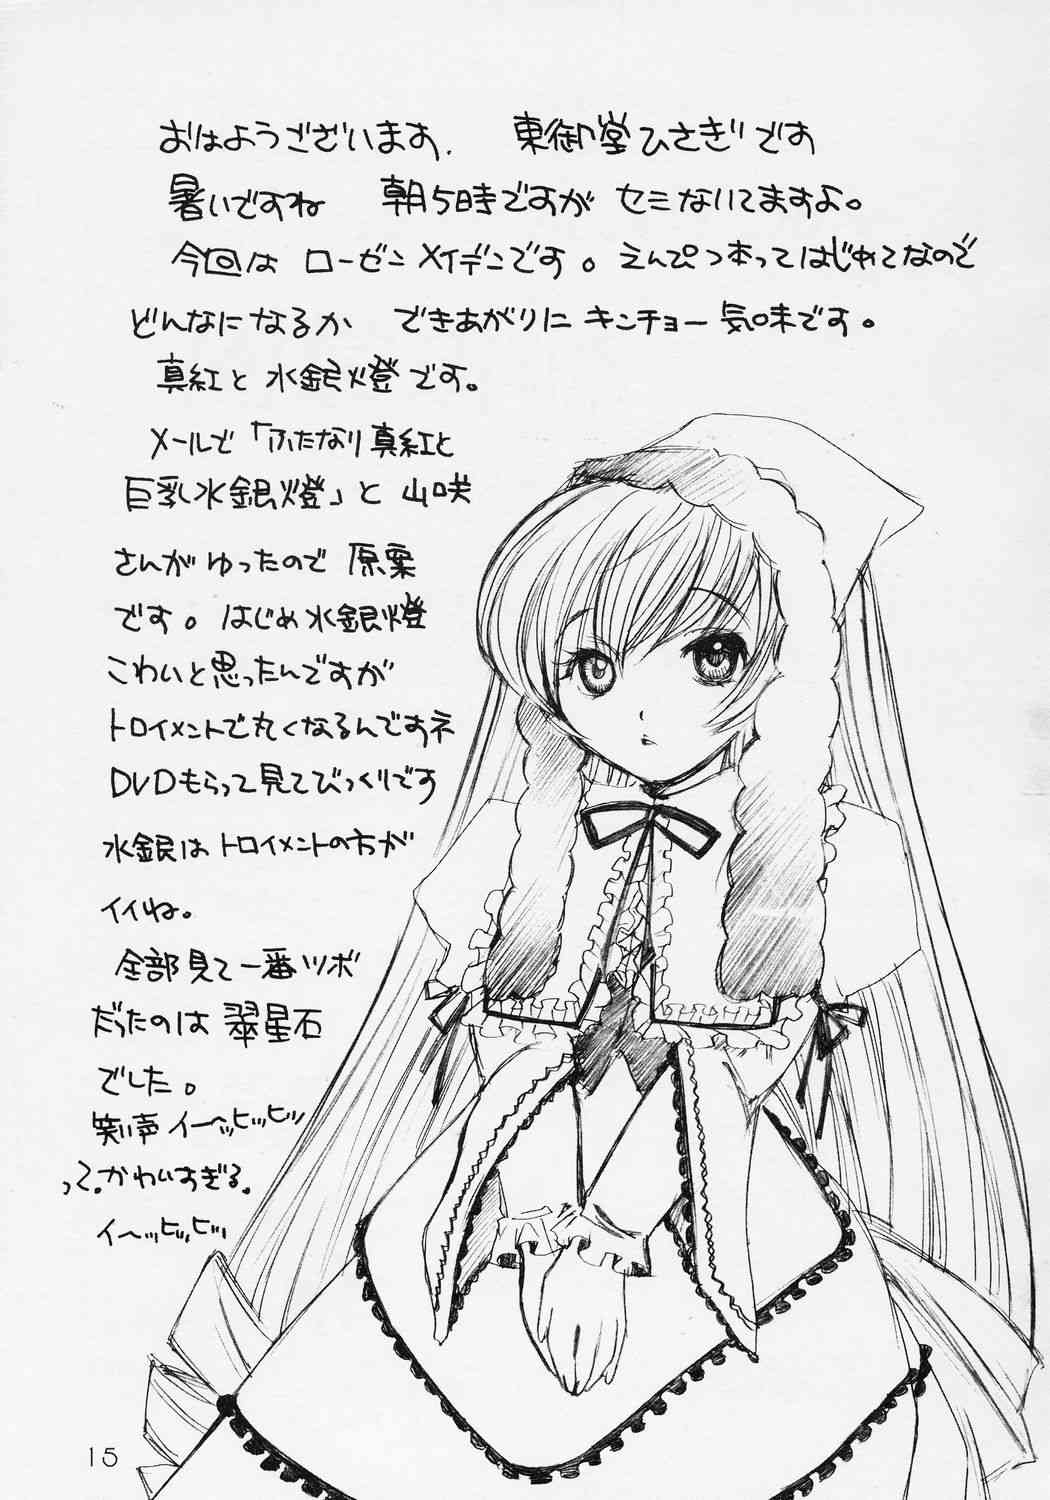 おはようございます. 東御堂ひさぎです
暑いですね 朝5時ですが セミないてますよ。
今回は ローゼンメイデンです。えんぴつ本ってはじめてなので
どんなになるか できあがりに キンチョー気味です。
真紅と 水銀燈です。
メールで「ふたなり真紅と
巨乳水銀燈」と 山咲
さんが ゆったので 原案
です。はじめ水銀燈
こわいと思ったんですが
トロイメントで丸くなるんですネ
DVDもらって見てびっくりです
水銀はトロイメントの方が
イイね。
全部見て一番ツボ
だったのは 翠星石
でした。
笑い声 イ〜ッヒッヒッ
って.かわいすぎる.
イ〜ッヒッヒッ
15